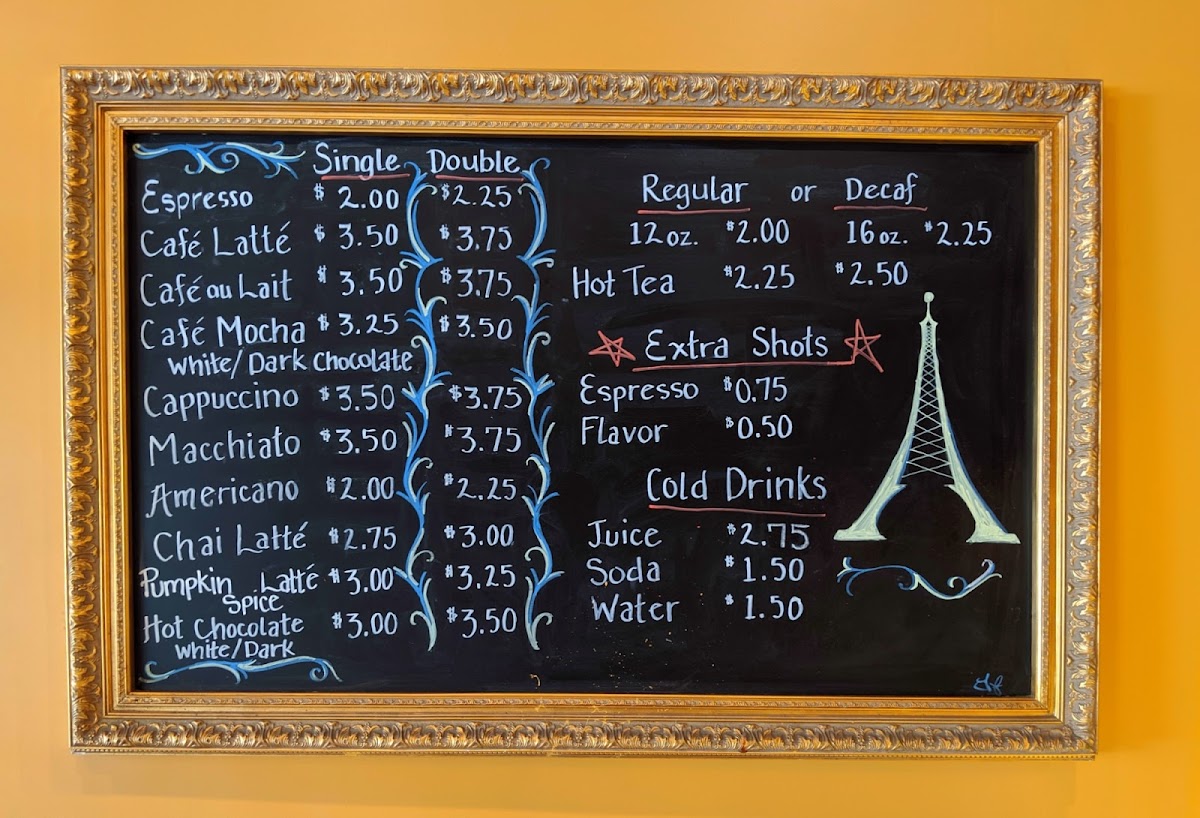 Single Double
Espresso $2.00 $2.25
Café Latté $3.50 $3.75
Café au Lait $3.50 $3.75
Café Mocha $3.25 $3.50
White/Dark Chocolate
Cappuccino $3.50 $3.75
Macchiato $3.50 $3.75
Americano $2.00 $2.25
Chai Latté $2.75 $3.00
Pumpkin Latté $3.00 $3.25
Spice
Hot Chocolate $3.00 $3.50
White/Dark
Regular or Decaf
12 oz. $2.00 16 oz. $2.25
Hot Tea $2.25 $2.50
Extra Shots
Espresso $0.75
Flavor $0.50
Cold Drinks
Juice $2.75
Soda $1.50
Water $1.50